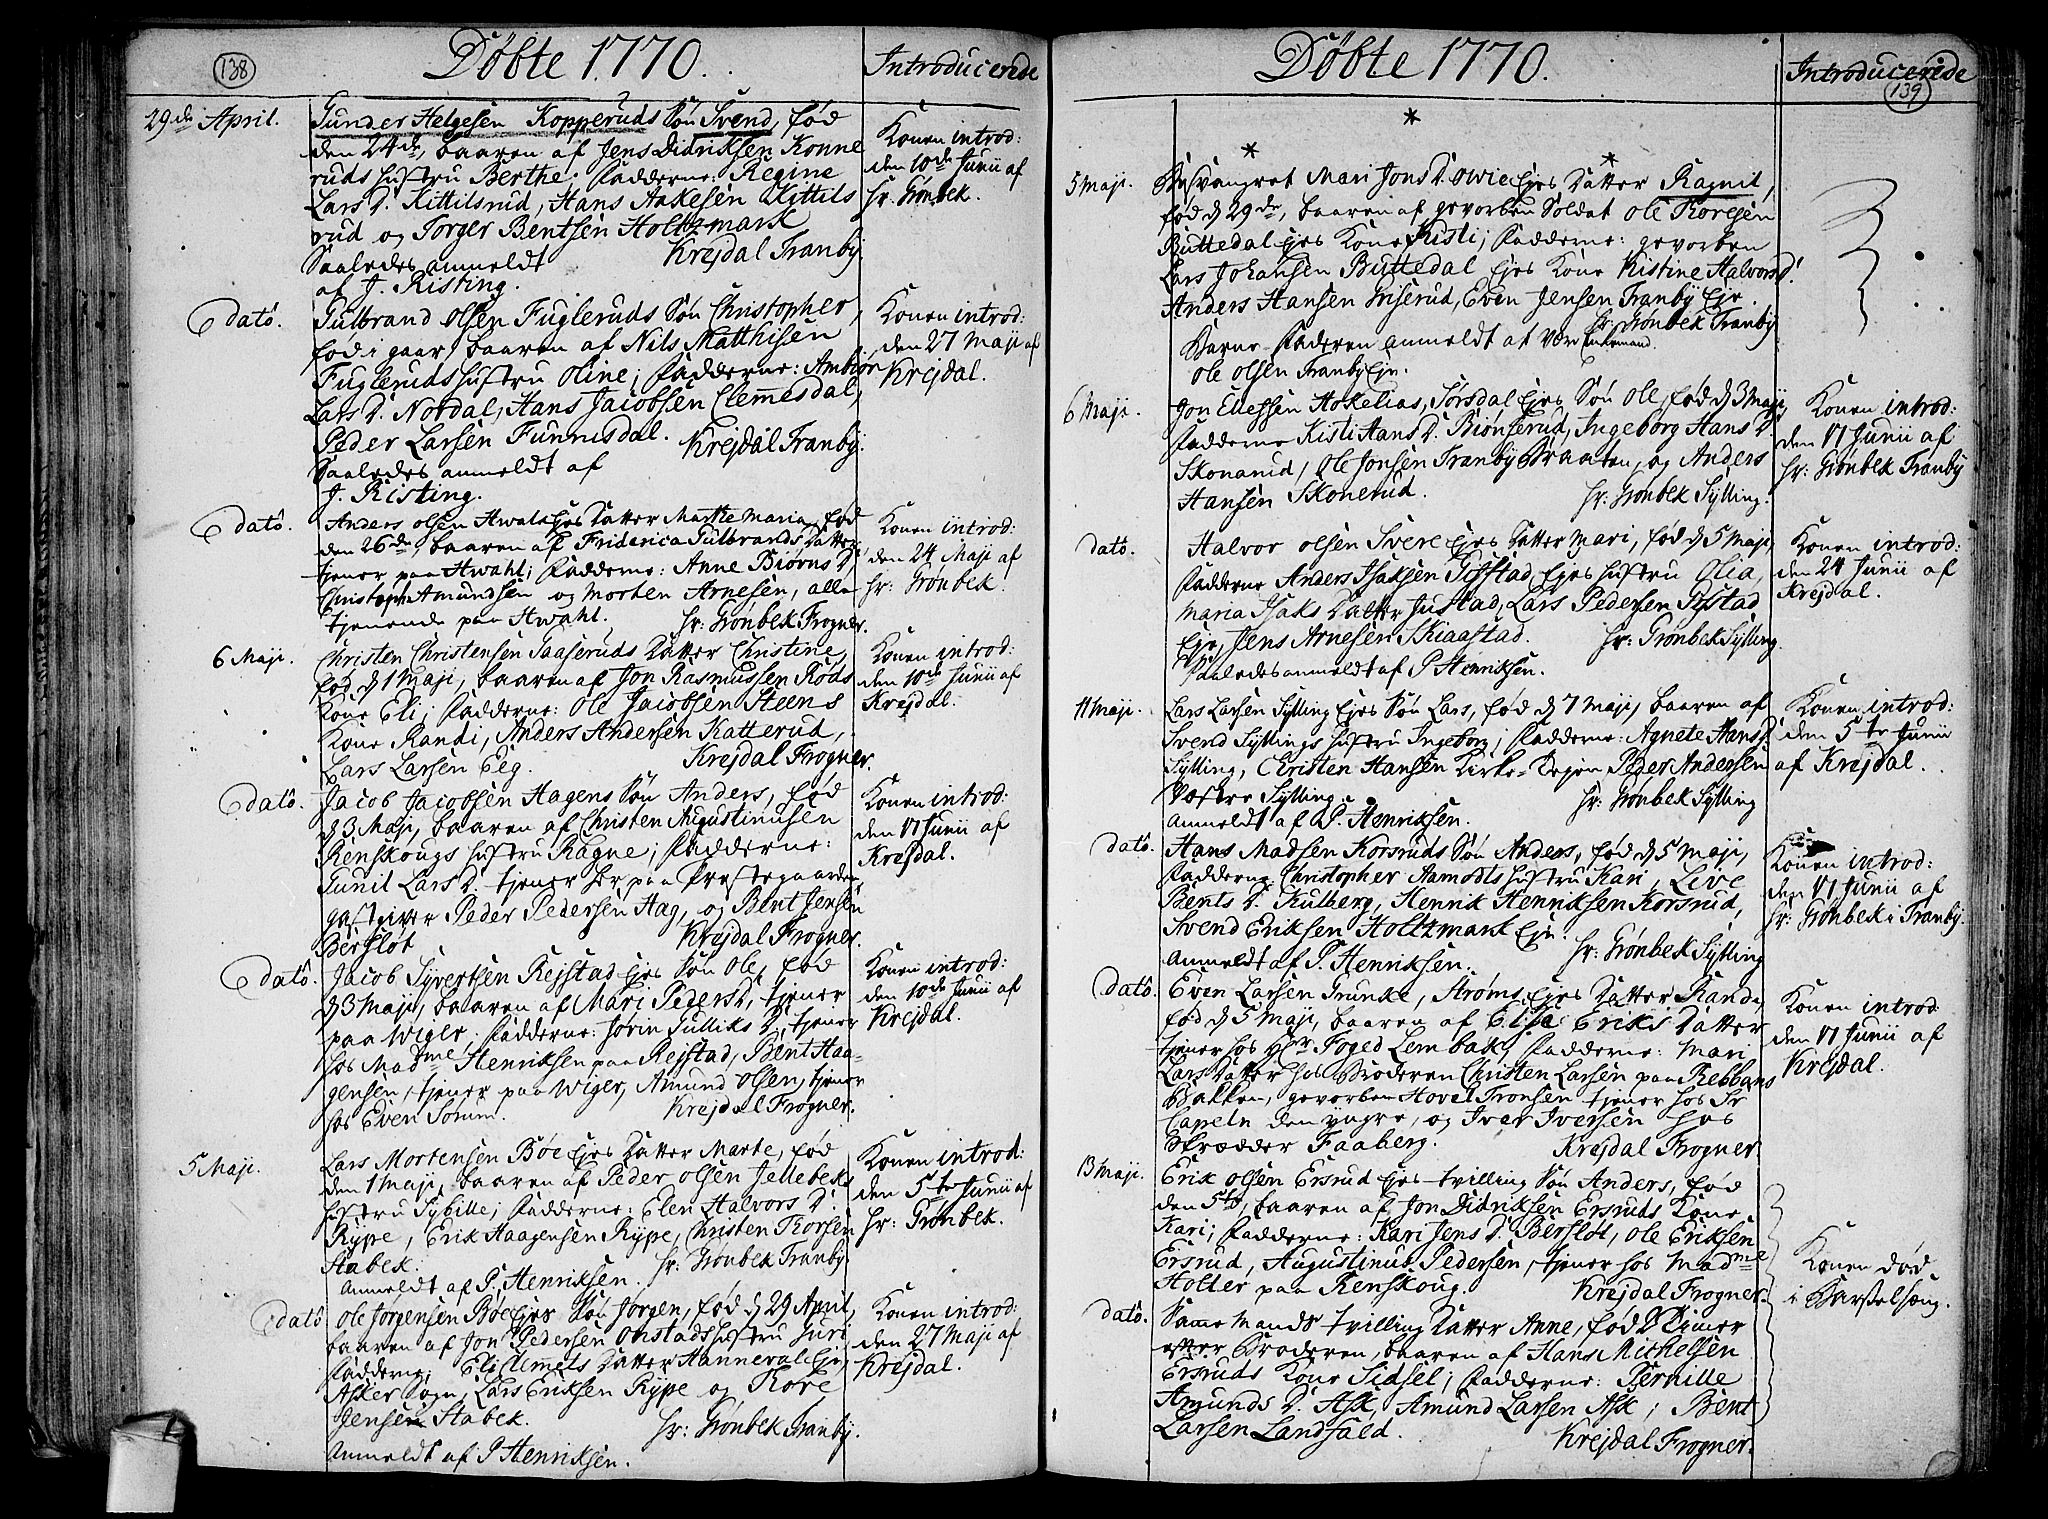 138
Döbte 1770.
Introducerede
29de April.
Gunder Helgesen Kopperuds Søn Svend, fød
den 24de, baaren af Jens Didriksen Konne
ruds Hustru Berthe. Fadderne: Regine
Lars D. Kittilsrud, Hans Aakesen Kittils
rud og Torger Bentsen Holtzmark
Saaledes anmeldt Krejdal Tranby.
af J. Risting.
Konen introd:
den 10de Junii af
hr. Grønbek.
dato.
Gulbrand Olsen Fugleruds Søn Christopher,
fød i gaar, baaren af Nils Matthisen
Fugleruds hustru Oline; Fadderne: Ambiør
Lars D. Nordal, Hans Jacobsen Clemmesdal,
Peder Larsen Funnisdal. Krejdal Tranby.
Saaledes anmeldt af
J. Risting.
Konen introd:
den 27 Maji af
Krejdal.
dato.
Anders Olsen Hwals Ejes Datter Marthe Maria, fød
den 26de, baaren af Friderica Gulbrands Datter,
tjener paa Hwahl; Fadderne: Anne Biørns D.
Christoph Amundsen og Morten Arnesen, alle
tjenende paa Hwahl. hr: Grønbek Frogner.
Konen introd:
den 24 Maji af
hr: Grønbek.
6 Maji.
Christen Christensen Saaseruds Datter Christine,
fød d 1 Maji, baaren af Jon Rasmussen Røds
Kone Eli; Fadderne: Ole Jacobsen Steens
Kone Randi, Anders Andersen Katterud,
Lars Larsen Eeg. Krejdal Frogner.
Konen introd:
den 10de Junii af
Krejdal.
dato.
Jacob Jacobsen Hagens Søn Anders, fød
d 3 Maji, baaren af Christen Augustinusen
Renskougs hustru Ragne; Fadderne:
Gunil Lars D. tjener her paa Præstegaarden
gastgiver Peder Pedersen Hag, og Bent Jensen
Bersløt Krejdal Frogner.
Konen introd:
den 17 Junii af
Krejdal.
dato.
Jacob Syvertsen Rejstad Ejes Søn Ole, fød
d 3 Maji, baaren af Mari Peders D., tjener
paa Wiger, Fadderne: Sørin Gulliks D. tjener
hos Madme Henriksen paa Rejstad, Bent Haa-
gensen, tjener paa Wiger, Amund Olsen, tjener
hos Even Sørum. Krejdal Frogner.
Konen introd:
den 10de Junii af
Krejdal.
5 Maji.
Lars Mortensen Bøe Ejes Datter Marte, fød
den 1 Maji, baaren af Peder Olsen Jellebeks
hustru Sybille; Fadderne: Elen Halvors D.
Rype, Erik Haagensen Rype, Christen Torsen
Stabek. hr: Grønbek Tranby.
Anmeldt af P. Henriksen.
Konen introd:
den 5te Junii af
hr: Grønbek.
dato
Ole Jørgensen Bøe Ejes Søn Jørgen, fød d 29 April,
baaren af Jon Pedersen Onstads hustru Guri
Fadderne: Eli Clemets Datter Hanneval Eje,
Asker Sogn, Lars Eriksen Rype og Tore
Jensen Stabek. hr: Grønbek Tranby.
Anmeldt af P Henriksen.
Konen introd:
den 27 Maji af
Krejdal.
Döbte 1770.
Introducerede
139
5 Maji.
Besvangret Mari Jons D. Owie Ejes Datter Ragnil,
fød d 29de, baaren af gevorben Soldat Ole Toresen
Buttedal Ejes Kone Kisti; Fadderne: gevorben
Lars Johansen Buttedal Ejes Kone Kistine Halvors D.
Anders Hansen Griserud, Even Jensen Tranby Eje.
hr: Grønbek Tranby
Barne-Faderen anmeldt at være Enkemand
Ole Olsen Tranby Eje.
6 Maji.
Jon Ellefsen Askelias, Sørsdal Ejes Søn Ole, fød d 3 Maji,
Fadderne Kisti Hans D. Biønserud, Ingeborg Hans D
Skonarud, Ole Jonsen Tranby Braaten, og Anders
Hansen Skonerud. hr: Grønbek Sylling.
Konen introd:
den 17 Junii af
hr: Grønbek Tranby
dato.
Halvor Olsen Svere Ejes Datter Mari, fød d 5 Maji,
Fadderne Anders Isaksen Gifstad, Ejes hustru Olia,
Maria Isaks Datter Justad, Lars Pedersen Gifstad
Eje, Jens Arnesen Skiaastad. hr: Grønbek Sylling.
Saaledes anmeldt af P. Henriksen.
Konen introd:
den 24 Junii af
Krejdal.
11 Maji.
Lars Larsen Sylling Ejes Søn Lars, fød d 7 Maji, baaren af
Svend Syllings hustru Ingeborg; Fadderne: Agnete Hans D
Sylling, Christen Hansen Kirke-Dejen Peder Andersen
Vestre Sylling. hr: Grønbek Sylling
Anmeldt af P. Henriksen.
Konen introd:
den 5te Junii
af Krejdal.
dato.
Hans Madsen Korsruds Søn Anders, fød d 5 Maji,
Fadderne Christopher Aamodts hustru Kari, Live
Bents D. Kulberg, Henrik Henriksen Korsrud,
Svend Eriksen Holtzmark Eje. hr: Grønbek Sylling
Anmeldt af P. Henriksen.
Konen introd:
den 17 Junii af
hr: Grønbek i Tranby.
dato.
Even Larsen Grunke, Strøms Ejes Datter Randi,
fød d 5 Maji, baaren af Elise Eriks Datter
tjener hos Hr Foged Lembak, Fadderne: Mari
Lars Datter hos Broderen Christen Larsen paa Rebbans
Bakken, gevorben Hovel Tronsen tjener hos Sr
Capeln den yngre, og Iver Iversen hos
Skrædder Faaberg. Krejdal Frogner
Konen introd
den 17 Junii af
Krejdal.
13 Maji.
Erik Olsen Ersrud Ejes tvilling Søn Anders, fød
den 5te, baaren af Jon Didriksen Ersruds Kone
Kari; Fadderne: Kari Jens D. Bersløt, Ole Eriksen
Ersrud, Augustinus Pedersen, tjener hos Madme
Holter paa Renskoug. Krejdal Frogner.
Konen død
i Barselseng.
dato.
Samme Mands tvilling Datter Anne, fød 2 Timer
efter Broderen, baaren af Hans Michelsen
Ersruds Kone Sidsel; Fadderne: Pernille
Amunds D. Ask, Amund Larsen Ask; Bent
Larsen Landfald. Krejdal Frogner.